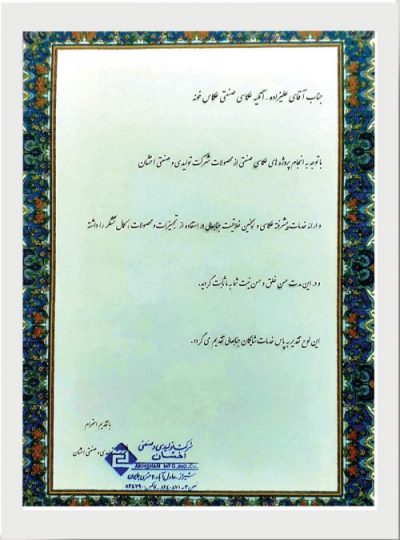 جناب آقای علیزاده - آتلیه عکاسی صنعتی عکاس خونه
با توجه به انجام پروژه های عکاسی صنتی از محصولات شرکت تولیدی و صنعتی اخشان
و ارائه خدمات پیشرفته عکاسی و همچنین خلاقیت جنابعالی در استفاده از تجهیزات و محصولات، کمال تشکر را داشته
و در این مدت حسن خلق و حسن نیت شما به ما ثابت گردید.
این لوح تقدیر به پاس خدمات شایگان جنابعالی تقدیم می گردد.
با تقدیم احترام
تولیدی و صنعتی اخشان
شرکت تولیدی و صنعتی
اخشان
AKHSHAN MFG.IND.Co.